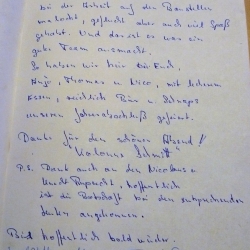 bei der Arbeit auf den Baustellen
malocht, geflucht aber auch viel Spaß
gehabt. Und das ist es was ein
gutes Team ausmacht.
So haben wir beim
Hugo, Thomas u. Nico, mit leckerem
Essen, reichlich Bier u. Schnaps
unseren Jahresabschluß gefeiert.
Danke für den schönen Abend!
Kolonne Schmitt
P.S. Dank auch an den Nicolaus u.
Knecht Ruprecht, hoffentlich
ist die Botschaft bei den entsprechenden
Leuten angekommen.
Bis hoffentlich bald wieder,